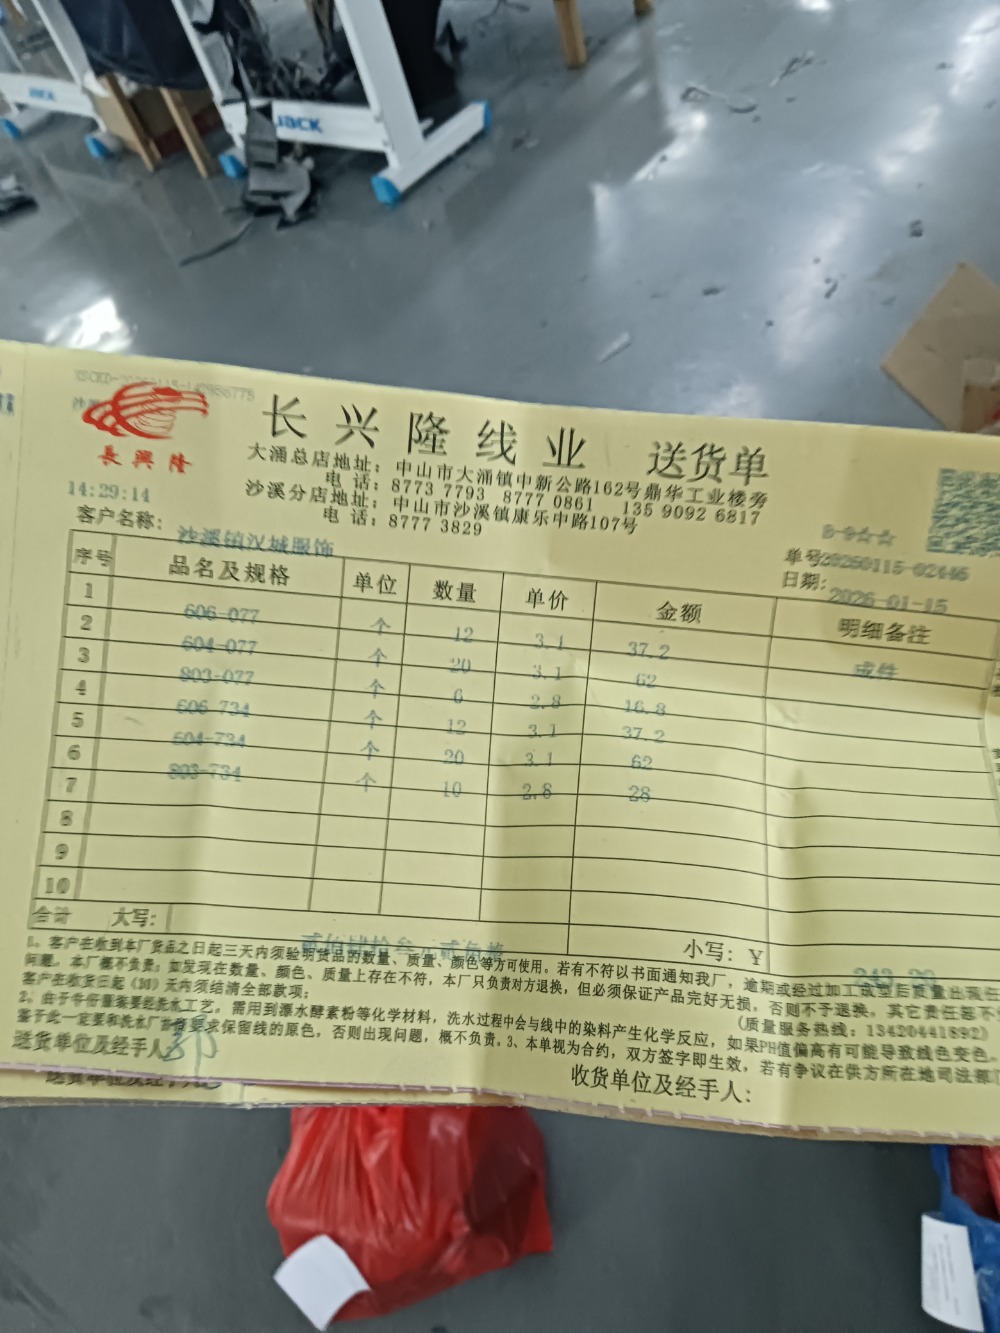 JACK
JACK
長興隆
长兴隆线业 送货单
大涌总店地址：中山市大涌镇中新公路162号鼎华工业楼旁
电话：8773 7793 8777 0861 135 9092 6817
沙溪分店地址：中山市沙溪镇康乐中路107号
电话：8777 3829
14:29:14
B-9☆☆
客户名称：沙溪镇汉城服饰
单号20260115-02446
日期：2026-01-15
序号 品名及规格 单位 数量 单价 金额 明细备注
1 606-077 个 12 3.1 37.2 成件
2 604-077 个 20 3.1 62
3 803-077 个 6 2.8 16.8
4 606-734 个 12 3.1 37.2
5 604-734 个 20 3.1 62
6 803-734 个 10 2.8 28
7
8
9
10
合计 大写：贰佰肆拾叁元贰角整 小写：￥243.20
1、客户在收到本厂货品之日起三天内须验明货品的数量、质量、颜色等方可使用。若有不符以书面通知我厂，逾期或经过加工成型后质量出现任
问题，本厂概不负责；如发现在数量、颜色、质量上存在不符，本厂只负责对方退换，但必须保证产品完好无损，否则不予退换，其它责任恕不
客户在收货日起（30）天内须结清全部款项； （质量服务热线：13420441892）
2、由于牛仔服装要经洗水工艺，需用到漂水酵素粉等化学材料，洗水过程中会与线中的染料产生化学反应，如果PH值偏高有可能导致线色变色，
鉴于此一定要和洗水厂商讲要求保留线的原色，否则出现问题，概不负责。3、本单视为合约，双方签字即生效，若有争议在供方所在地司法部门
送货单位及经手人： 郭 收货单位及经手人：
送货单位及经手人：